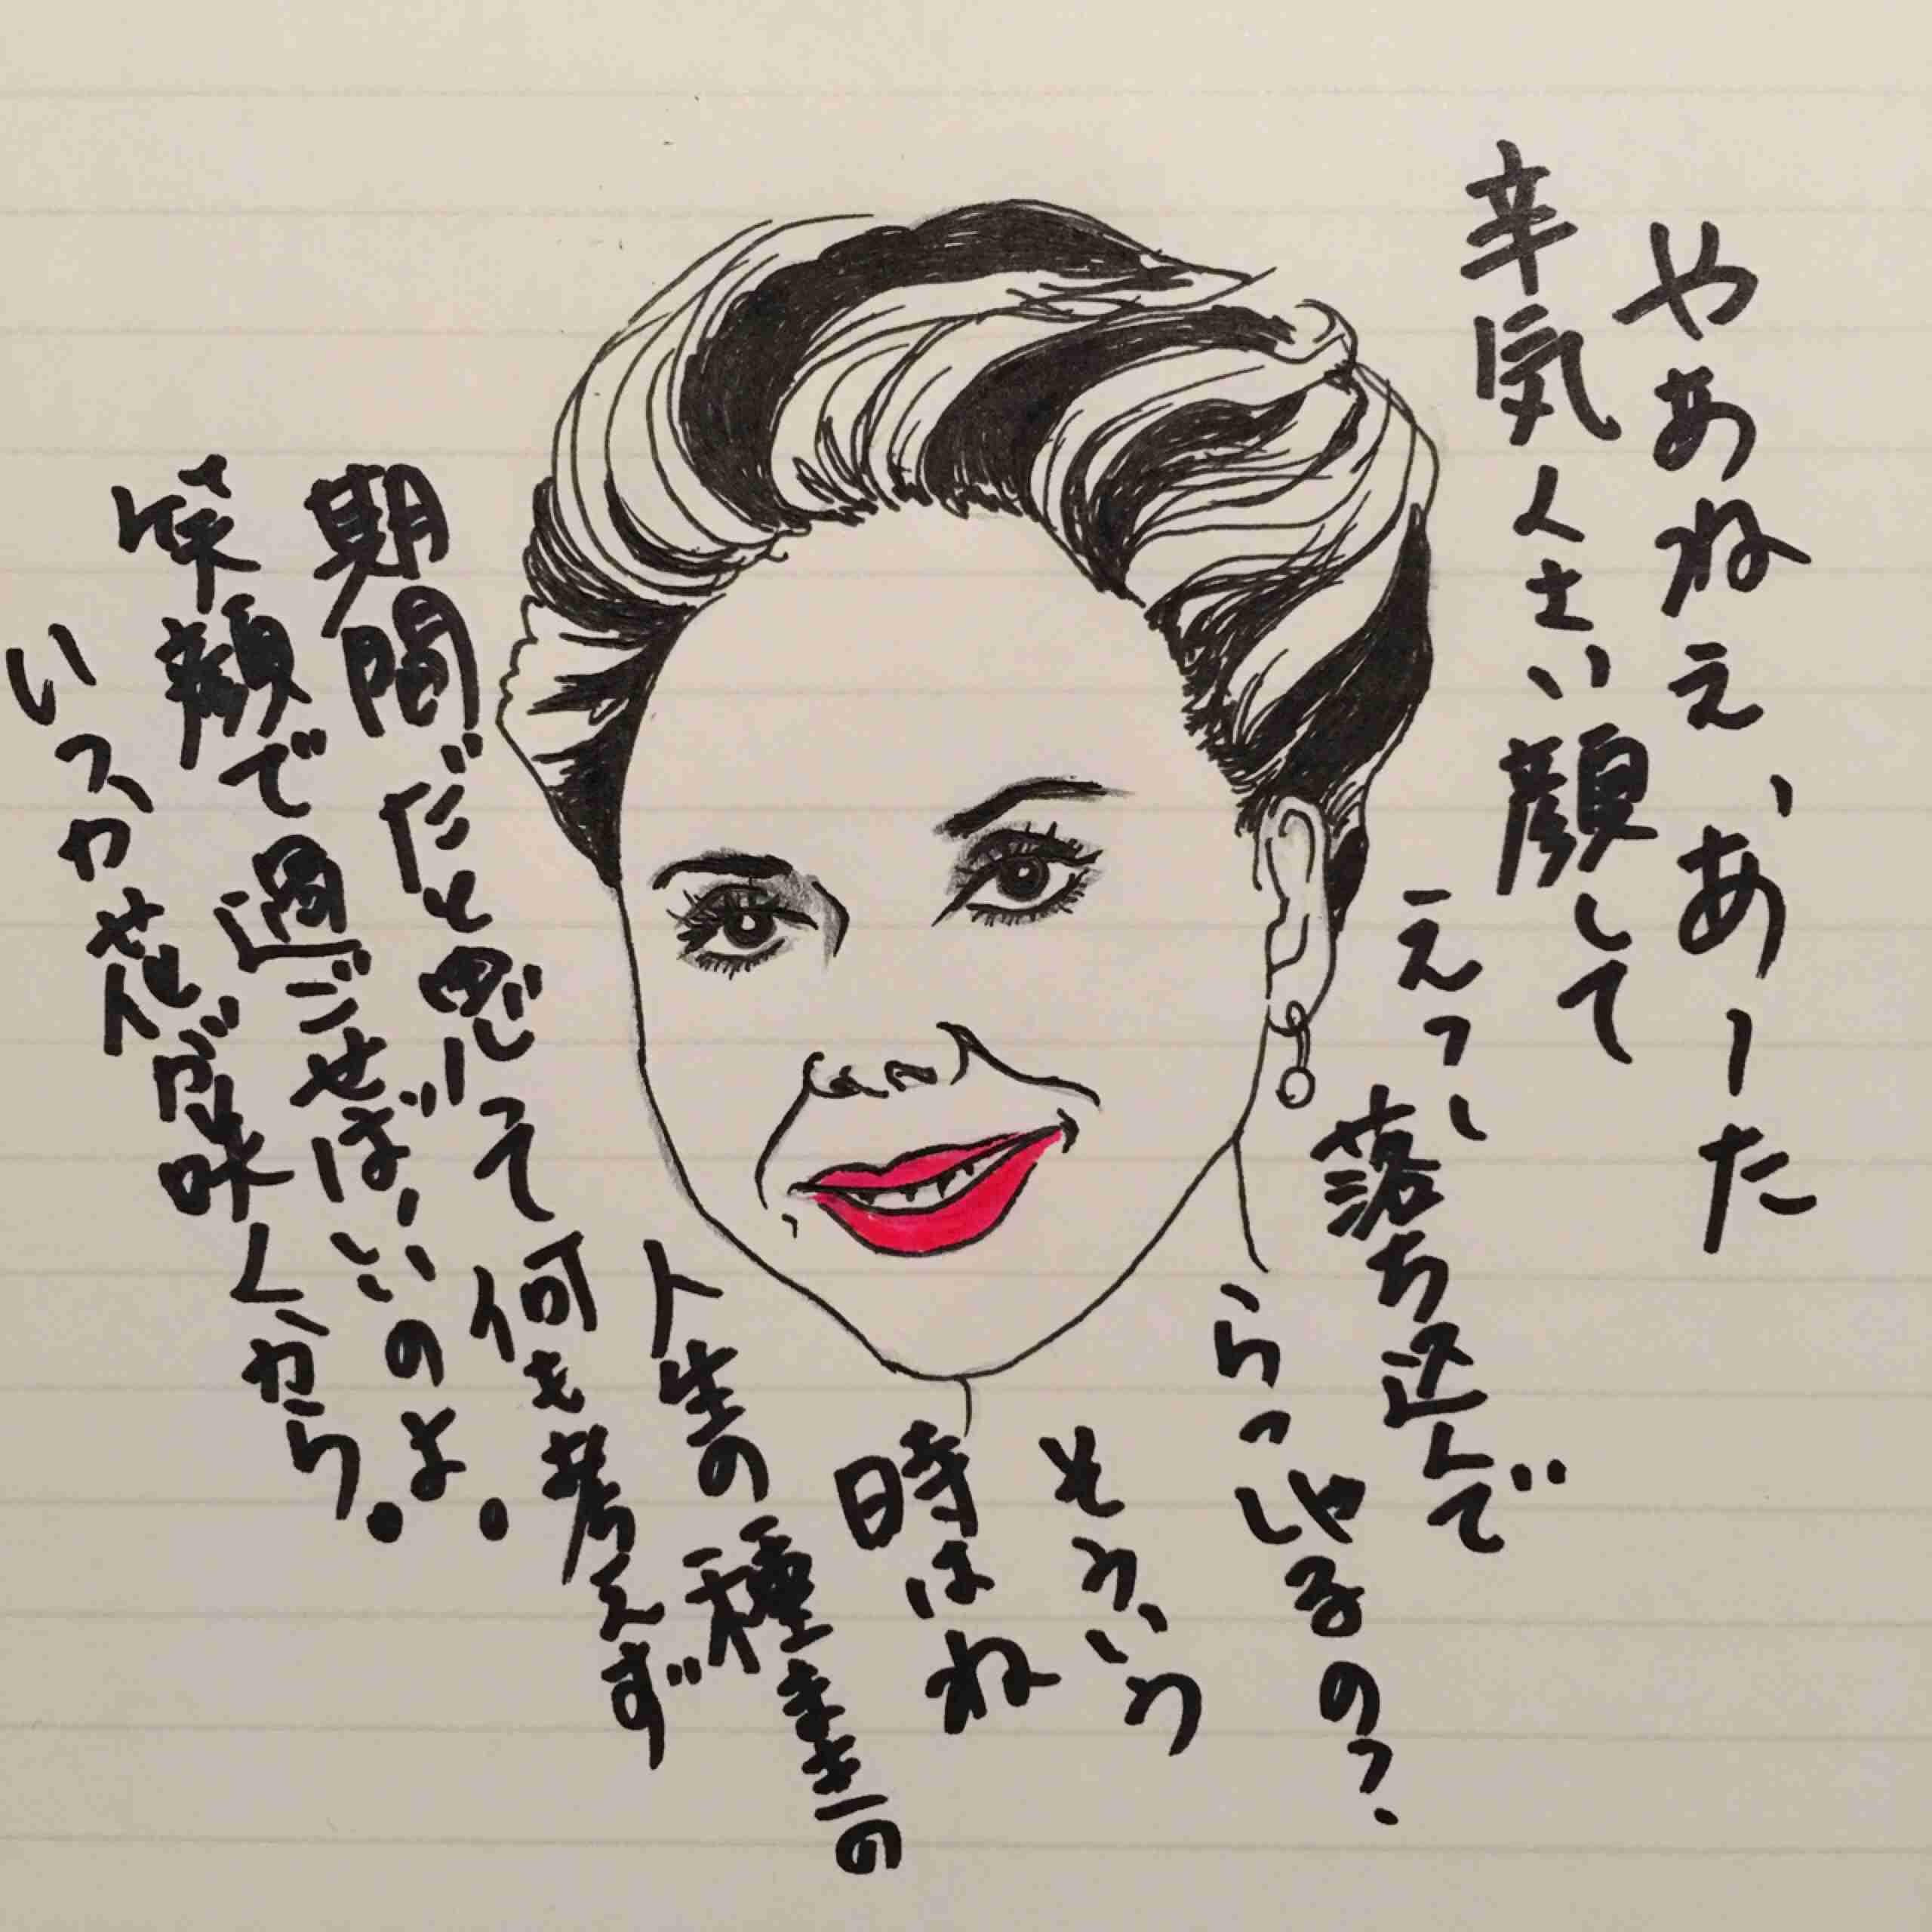 やあねえ、あーた
辛気くさい顔して
えっ、落ち込んで
らっしゃるの?
そういう
時はね
人生の種まきの
期間だと思って何も考えず
笑顔で過ごせばいいのよ。
いつか花が咲くから。